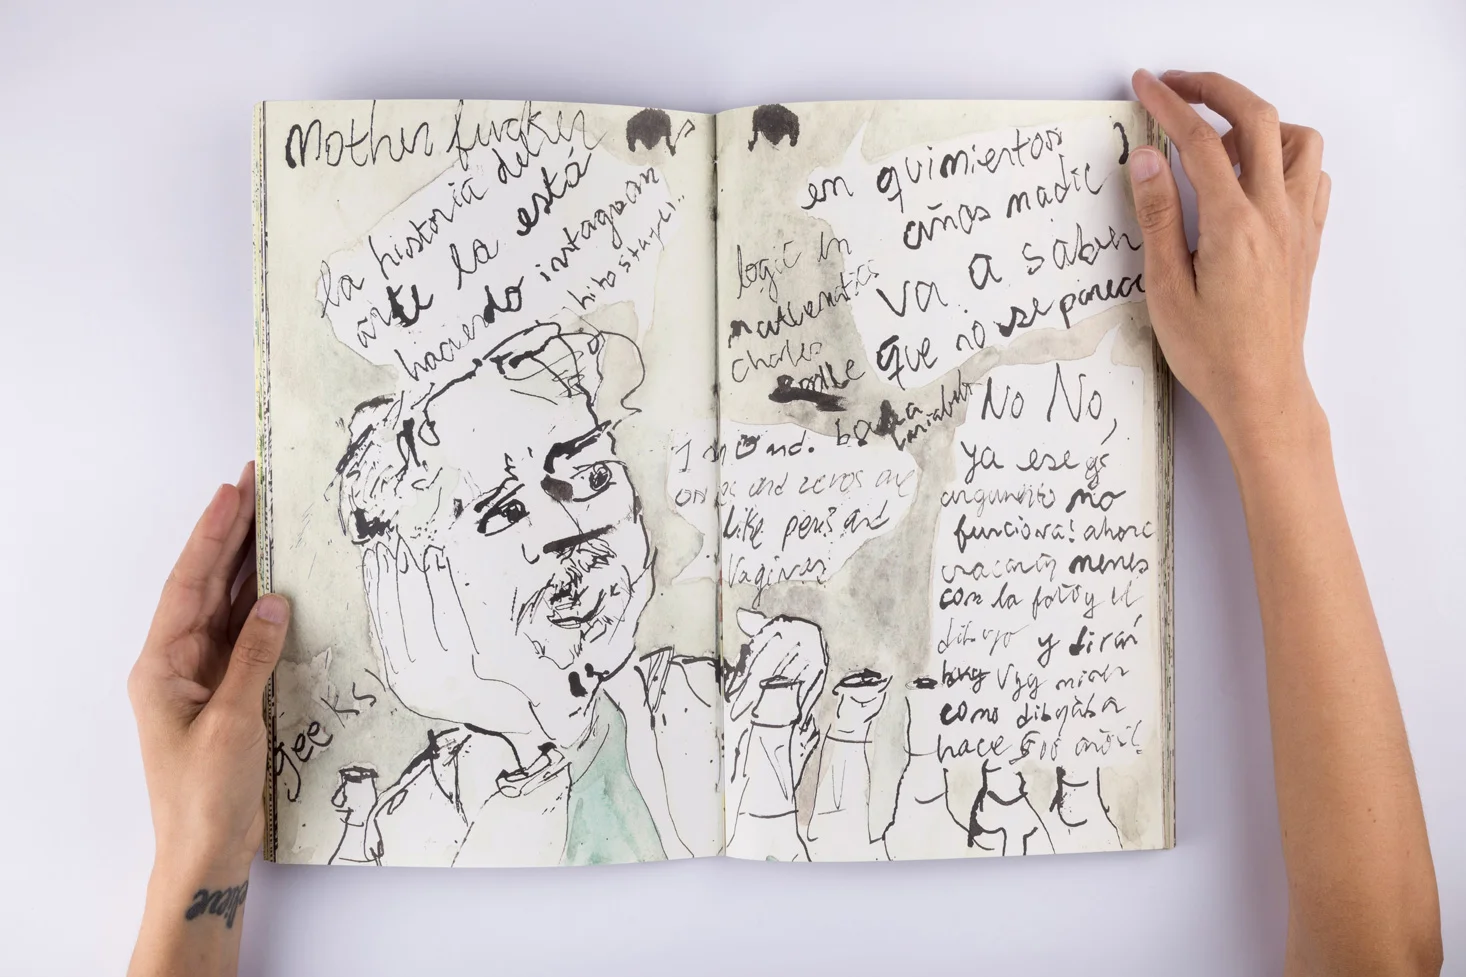 Mother fucker
la historia del
arte la está
haciendo instagram
hito steyerl..
geeks
en quinientos
años nadie
va a saber
que no se parece
logic in
mathematics
Charles
Boole
variabel
1 and
ones and zeros are
like penis and
Vaginas
No No,
ya ese
argumento no
funciona! ahora
memes
con la foto y el
dibujo y dirán
bvgg Vgg miren
como dibujaba
hace 500 años!
elieve